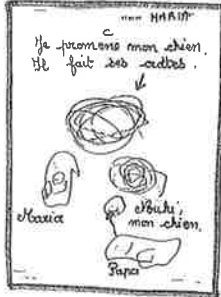 MARIA
c
Je promene mon chien.
Il fait ses crottes.
Maria
Nouki,
mon chien.
Papa